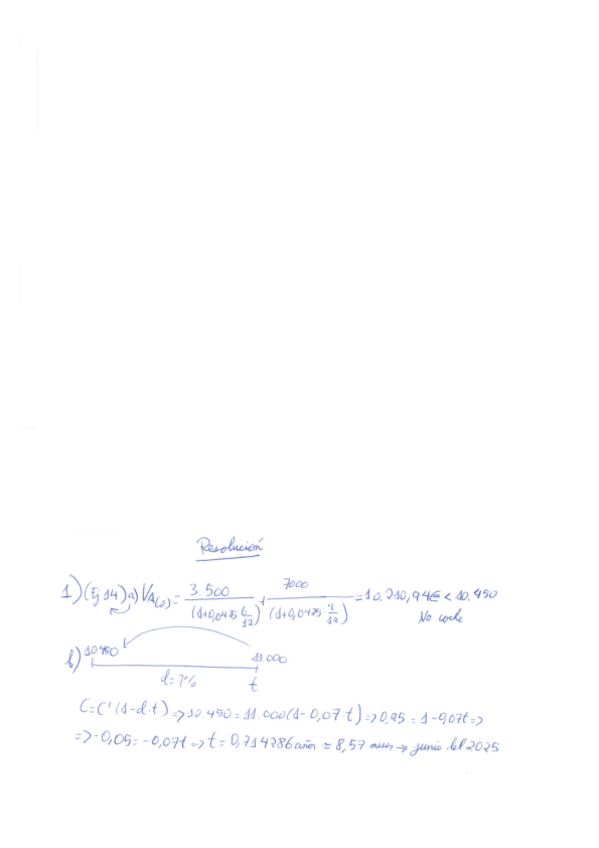 Resolución
1) (Ej 14) a) VA(0) = 3.500 / (1+0,0475 6/12) + 7000 / (1+0,0475 · 9/12) = 10.210,94€ < 10.450
No coche
b) 10.450 11.000
d=7% t
C=C'(1-d·t) => 10.450 = 11.000(1-0,07·t) => 0,95 = 1-0,07t =>
=> -0,05 = -0,07t => t = 0,714286 años ≈ 8,57 meses → junio del 2025